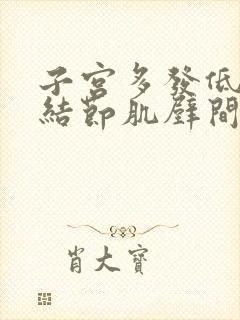 子宮多發低
結節肌壁間
肖大寶